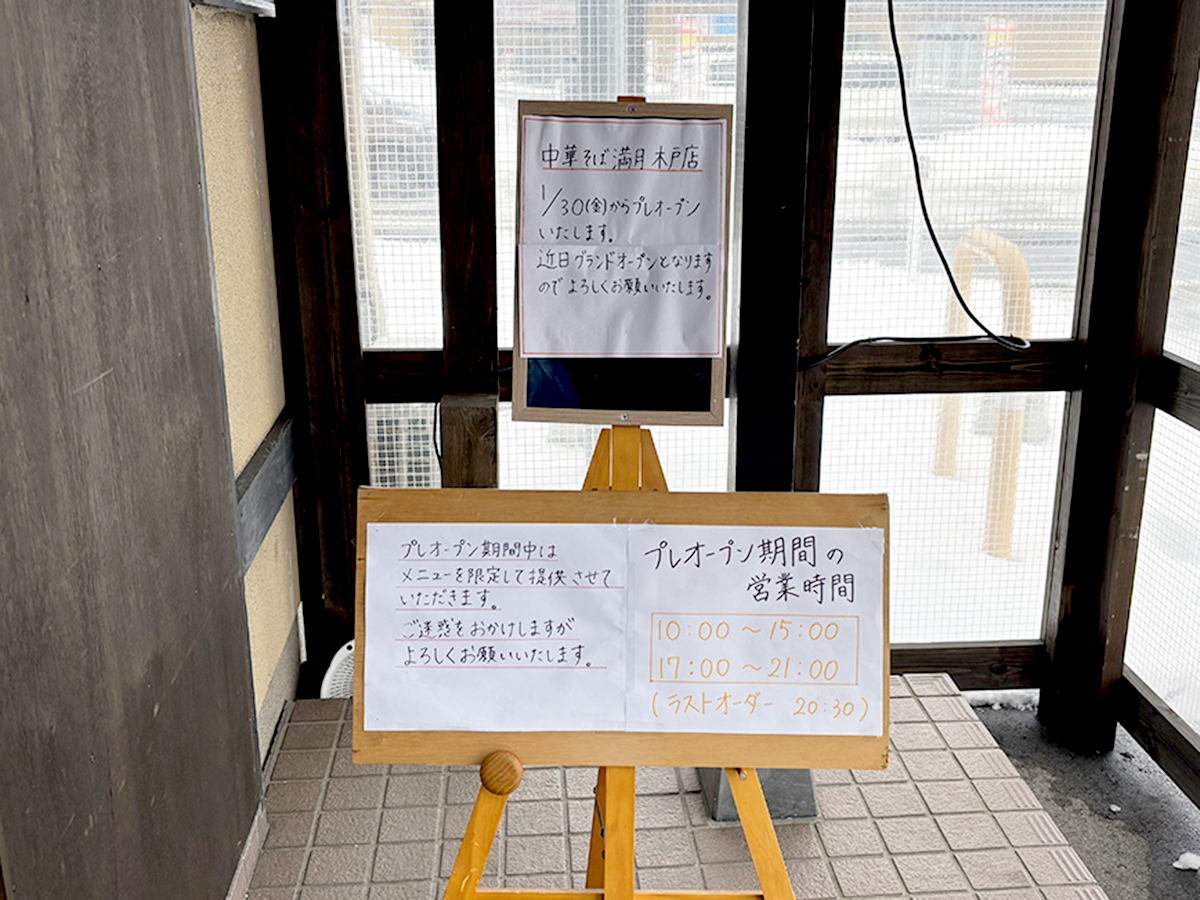 中華そば 満月 木戸店
1/30(金)からプレオープン
いたします。
近日グランドオープンとなります
のでよろしくお願いいたします。
プレオープン期間中は
メニューを限定して提供させて
いただきます。
ご迷惑をおかけしますが
よろしくお願いいたします。
プレオープン期間の
営業時間
10:00 〜 15:00
17:00 〜 21:00
(ラストオーダー 20:30)